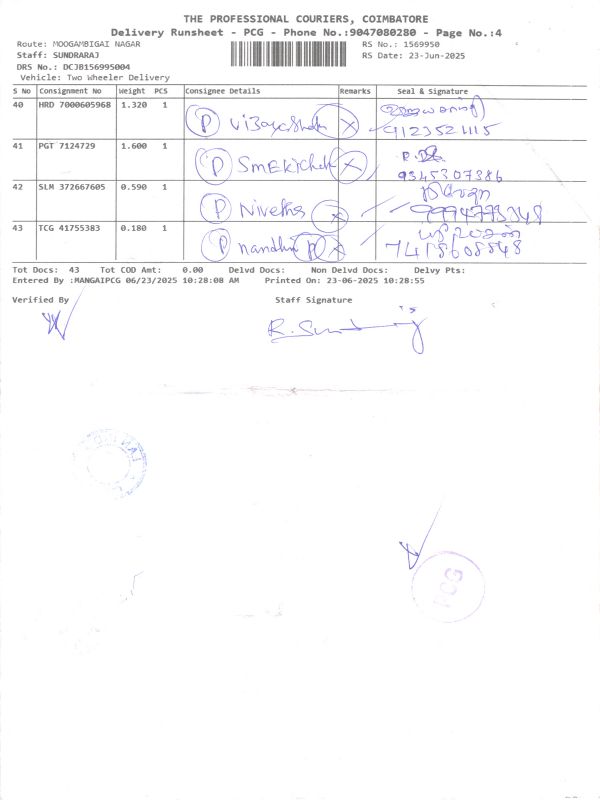 THE PROFESSIONAL COURIERS, COIMBATORE
Delivery Runsheet - PCG - Phone No.:9047080280 - Page No.:4
Route: MOOGAMBIGAI NAGAR
RS No.: 1569950
Staff: SUNDRARAJ
RS Date: 23-Jun-2025
DRS No.: DCJB156995004
Vehicle: Two Wheeler Delivery
S No Consignment No Weight PCS Consignee Details Remarks Seal & Signature
40 HRD 7000605968 1.320 1
P X 9123521115
41 PGT 7124729 1.600 1
P X
9345307386
42 SLM 372667605 0.590 1
P Nivetha X
43 TCG 41755383 0.180 1
P nandhu P X
Tot Docs: 43 Tot COD Amt: 0.00 Delvd Docs: Non Delvd Docs: Delvy Pts:
Entered By :MANGAIPCG 06/23/2025 10:28:08 AM Printed On: 23-06-2025 10:28:55
Verified By Staff Signature
PCG